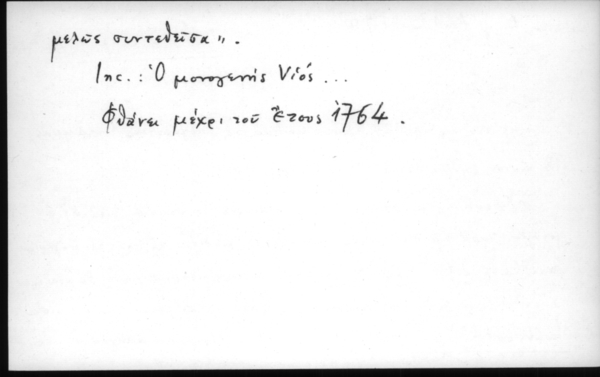 μελῶς συντεθεῖσα».
Inc.: Ὁ μονογενής Υἱός ...
Φθάνει μέχρι τοῦ ἔτους 1764.